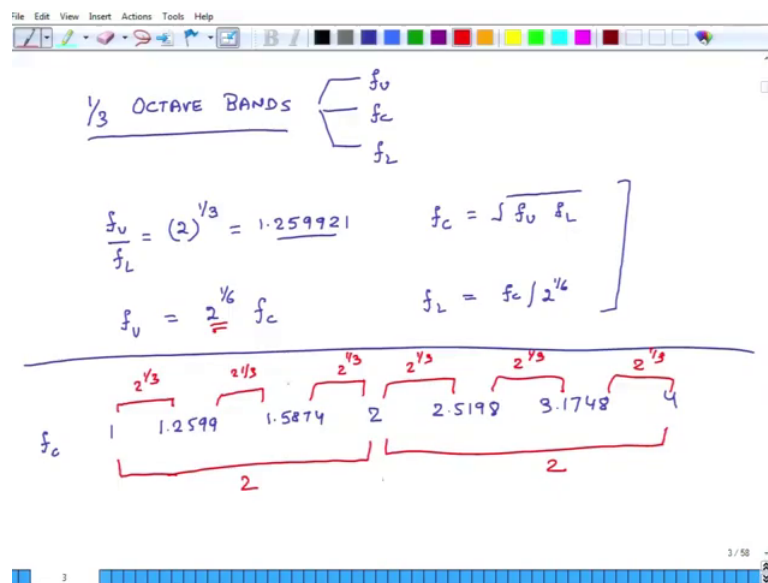 File Edit View Insert Actions Tools Help
B I
1/3 OCTAVE BANDS
fU
fC
fL
fU/fL = (2)^1/3 = 1.259921
fC = √fU fL
fU = 2^1/6 fC
fL = fC/2^1/6
2^1/3 2^1/3 2^1/3 2^1/3 2^1/3 2^1/3
fC 1 1.2599 1.5874 2 2.5198 3.1748 4
2 2
3 / 58
3